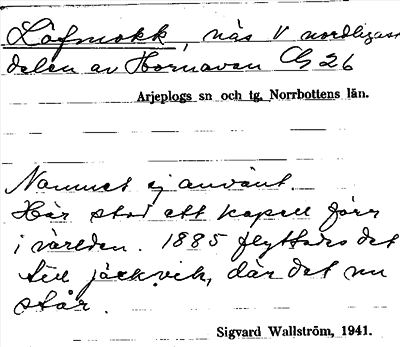 Löfmokk, näs V nordligast
delen av Hornavan Ch 26
Arjeplogs sn och tg, Norrbottens län.
Namnet ej använt.
Här stod ett kapell förr
i världen. 1885 flyttades det
till jäckvik, där det nu
står.
Sigvard Wallström, 1941.